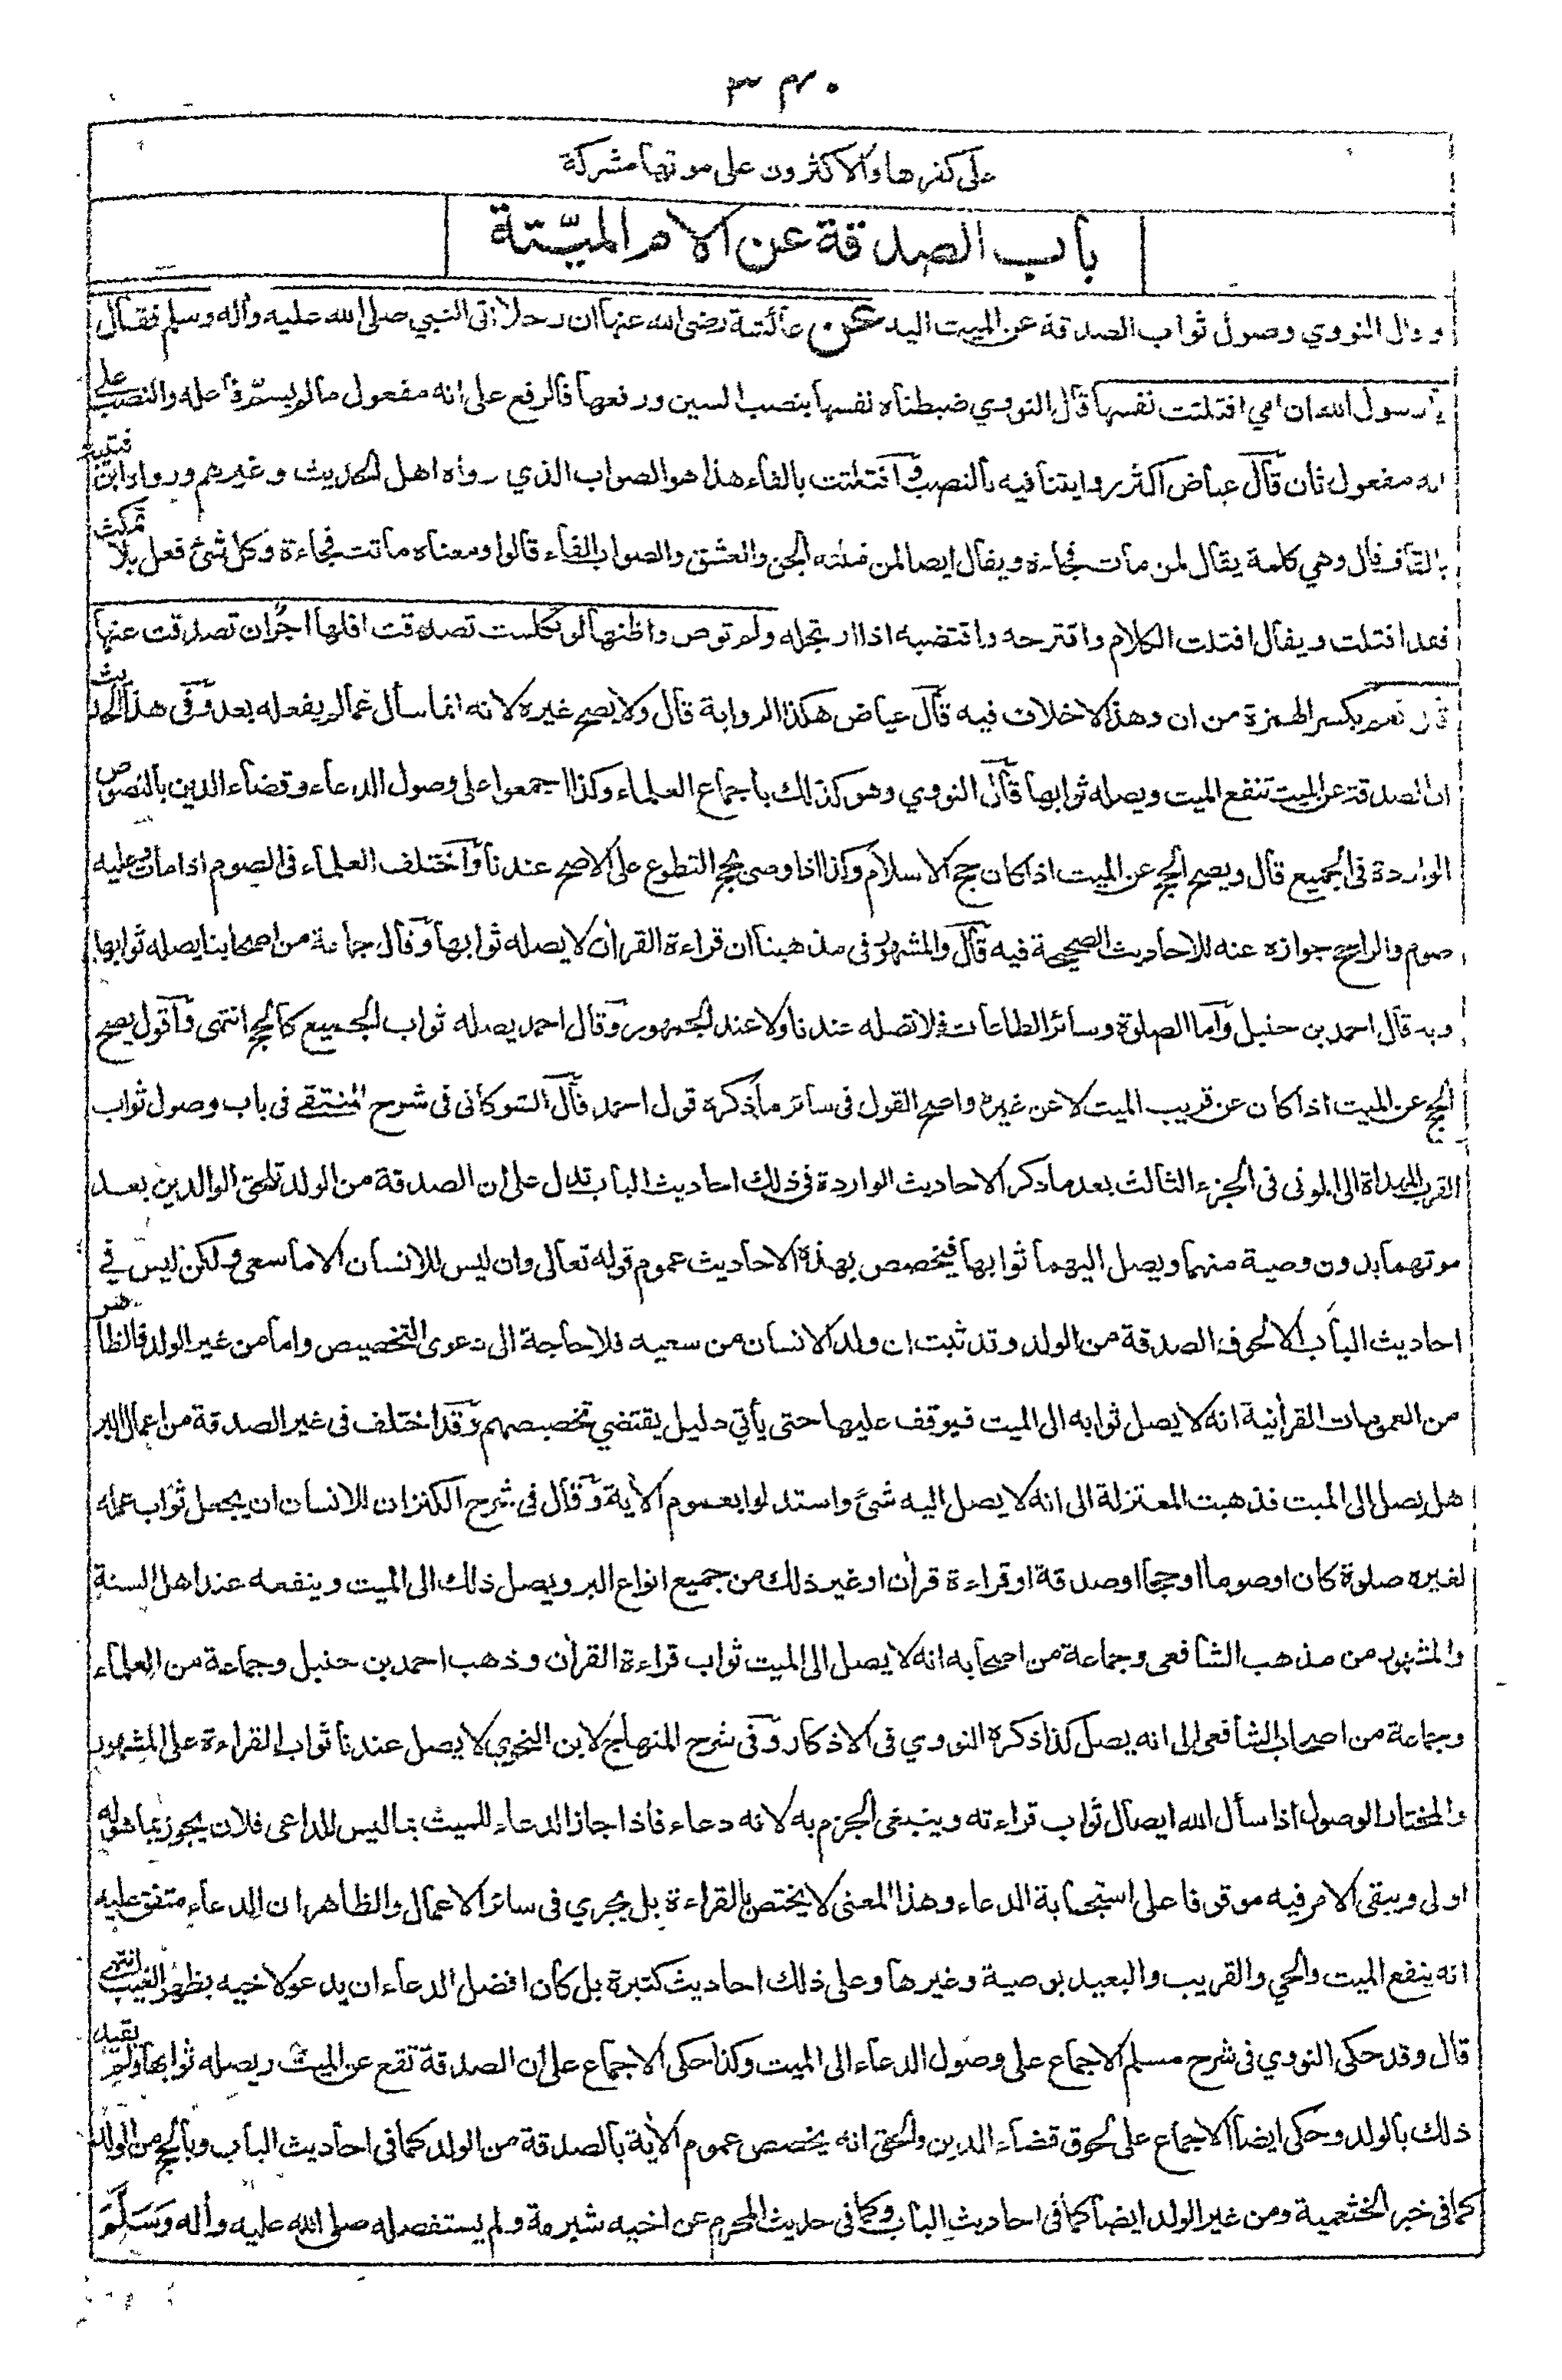 ٣٤٠
على كفرها والاكثرون على موتها مشركة
باب الصدقة عن الام الميّتة
وقال النووي وصول ثواب الصدقة عن الميت اليه عن عائشة رضى الله عنها ان رجلا اتى النبي صلى الله عليه واله وسلم فقال
يا رسول الله ان امي افتلتت نفسها قال النووي ضبطناه نفسها بنصب السين ورفعها فالرفع على انه مفعول مالم يسمّ فاعله والنصب على
انه مفعول ثان قال عياض اكثر روايتنا فيه بالنصب وافتلتت بالفاء هذا هو الصواب الذي رواه اهل الحديث وغيرهم ورواه ابن قتيبة
بالقاف قال وهي كلمة يقال لمن مات فجاءة ويقال ايضا لمن قتلته الجن والعشق والصواب الفاء قالوا ومعناه ماتت فجاءة وكل شئ فعل بلا تمكث
فقد افتلت ويقال افتلت الكلام واقترحه واقتضبه اذا ارتجله ولم توص واظنها لو تكلمت تصدقت افلها اجر ان تصدقت عنها
قال نعم بكسر الهمزة من ان وهذا لا خلاف فيه قال عياض هكذا الرواية قال ولا يصح غيره لانه انما سأل عمالم يفعله بعد وفى هذا الحديث
ان الصدقة عن الميت تنفع الميت ويصله ثوابها قال النووي وهو كذلك باجماع العلماء وكذا اجمعوا على وصول الدعاء وقضاء الدين بالنصوص
الواردة فى الجميع قال ويصح الحج عن الميت اذا كان حج الاسلام وكذا اذا وصى بحج التطوع على الاصح عندنا واختلف العلماء فى الصوم اذا مات وعليه
صوم والراجح جوازه عنه للاحاديث الصحيحة فيه قال والمشهور فى مذهبنا ان قراءة القران لا يصله ثوابها وقال جماعة من اصحابنا يصله ثوابها
وبه قال احمد بن حنبل واما الصلوة وسائر الطاعات فلا تصله عندنا ولا عند الجمهور وقال احمد يصله ثواب الجميع كالحج انتهى واقول يصح
الحج عن الميت اذا كان عن قريب الميت لا عن غيره واصح القول فى سائر ما ذكره قول احمد قال الشوكانى فى شرح المنتقى فى باب وصول ثواب
القرب المهداة الى الموتى فى الجزء الثالث بعد ما ذكر الاحاديث الواردة فى ذلك احاديث الباب تدل على ان الصدقة من الولد تلحق الوالدين بعد
موتهما بدون وصية منهما ويصل اليهما ثوابها فيخصص بهذه الاحاديث عموم قوله تعالى وان ليس للانسان الا ما سعى ولكن ليس في
احاديث الباب الا لحوق الصدقة من الولد وقد ثبت ان ولد الانسان من سعيه فلا حاجة الى دعوى التخصيص واما من غير الولد فالظاهر
من العمومات القرانية انه لا يصل ثوابه الى الميت فيوقف عليها حتى يأتي دليل يقتضي تخصيصهم وقد اختلف فى غير الصدقة من اعمال البر
هل يصل الى الميت فذهبت المعتزلة الى انه لا يصل اليه شئ واستدلوا بعموم الاية وقال فى شرح الكنز ان للانسان ان يجعل ثواب عمله
لغيره صلوة كان او صوما او حجا او صدقة او قراءة قران او غير ذلك من جميع انواع البر ويصل ذلك الى الميت وينفعه عند اهل السنة
والمشهور من مذهب الشافعى وجماعة من اصحابه انه لا يصل الى الميت ثواب قراءة القران وذهب احمد بن حنبل وجماعة من العلماء
وجماعة من اصحاب الشافعى الى انه يصل كذا ذكره النووي فى الاذكار وفى شرح المنهاج لابن النحوي لا يصل عندنا ثواب القراءة على المشهور
والمختار الوصول اذا سأل الله ايصال ثواب قراءته وينبغى الجزم به لانه دعاء فاذا جاز الدعاء للميت بما ليس للداعى فلان يجوز بما هو له
اولى ويبقى الامر فيه موقوفا على استجابة الدعاء وهذا المعنى لا يختص بالقراءة بل يجري فى سائر الاعمال والظاهر ان الدعاء متفق عليه
انه ينفع الميت والحي والقريب والبعيد بوصية وغيرها وعلى ذلك احاديث كثيرة بل كان افضل الدعاء ان يدعو لاخيه بظهر الغيب انتهى
قال وقد حكى النووي فى شرح مسلم الاجماع على وصول الدعاء الى الميت وكذا حكى الاجماع على ان الصدقة تقع عن الميت ويصله ثوابها ولم يقيد
ذلك بالولد وحكى ايضا الاجماع على لحوق قضاء الدين والحق انه يخصص عموم الاية بالصدقة من الولد كما فى احاديث الباب وبالحج من الولد
كما فى خبر الخثعمية ومن غير الولد ايضا كما فى احاديث الباب وكما فى حديث المحرم عن اخيه شبرمة ولم يستفصله صلى الله عليه واله وَسَلَّمَ